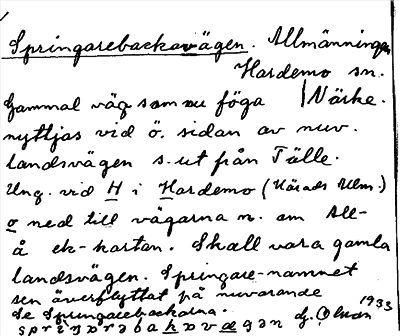 Springarebackavägen. Allmänningen
Hardemo sn.
Gammal väg som nu föga | Närke.
nyttjas vid ö. sidan av nuv.
landsvägen s. ut från Tälle.
Ung. vid H i Hardemo (Härads Allm.)
o ned till vägarna n. om All-
å ek-kartan. Skall vara gamla
landsvägen. Springare-namnet
sen överflyttat på nuvarande
Se Springarebackarna. 1933
G. Olson